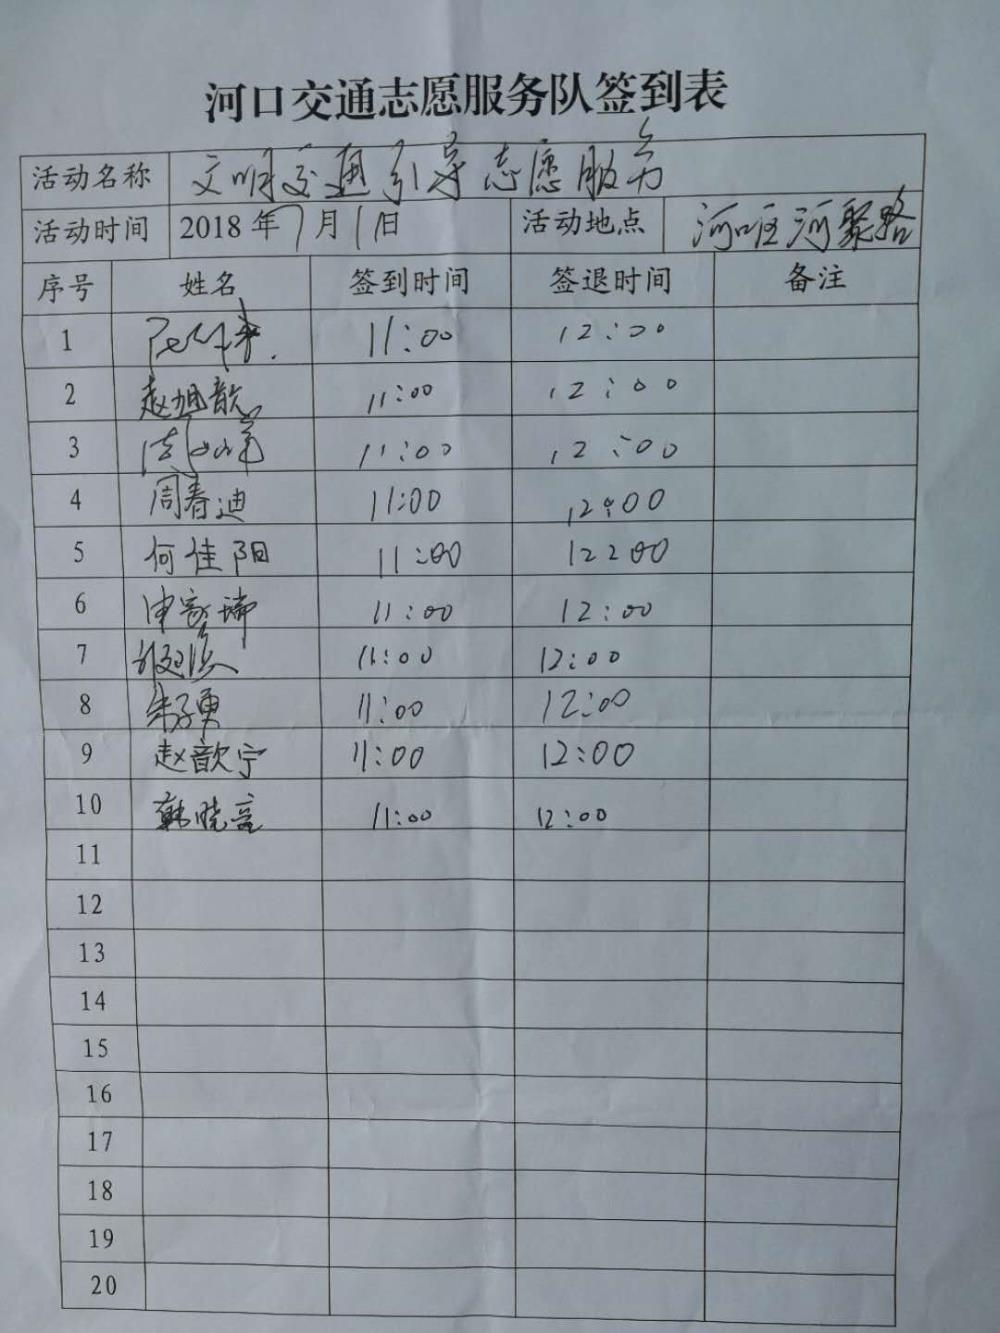 河口交通志愿服务队签到表
活动名称 文明交通引导志愿服务
活动时间 2018年7月1日 活动地点 河聚路
序号 姓名 签到时间 签退时间 备注
1 11:00 12:00
2 赵旭歆 11:00 12:00
3 11:00 12:00
4 周春迪 11:00 12:00
5 何佳阳 11:00 12:00
6 申家瑞 11:00 12:00
7 11:00 12:00
8 朱子勇 11:00 12:00
9 赵歆宁 11:00 12:00
10 韩晓亮 11:00 12:00
11
12
13
14
15
16
17
18
19
20